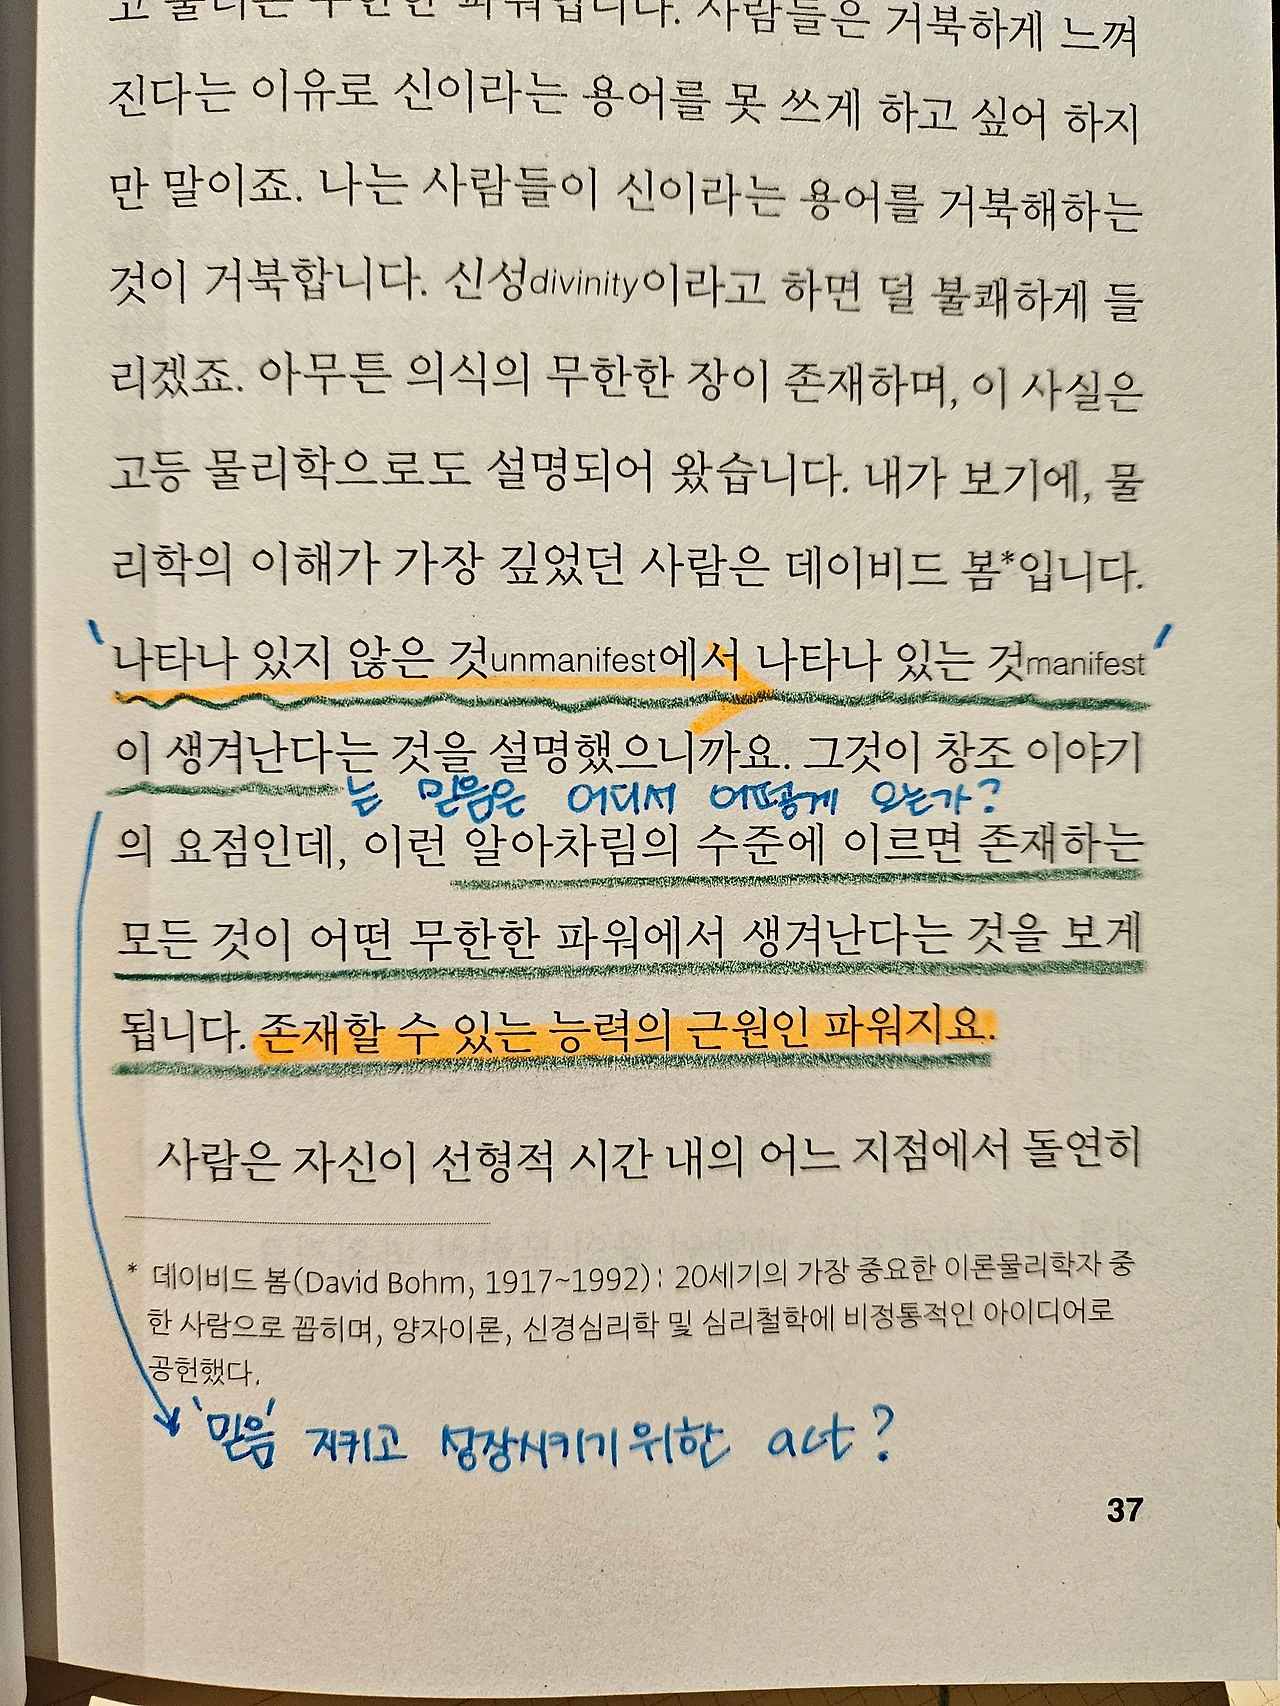 고 불리는 무한한 파워입니다. 사람들은 거북하게 느껴
진다는 이유로 신이라는 용어를 못 쓰게 하고 싶어 하지
만 말이죠. 나는 사람들이 신이라는 용어를 거북해하는
것이 거북합니다. 신성divinity이라고 하면 덜 불쾌하게 들
리겠죠. 아무튼 의식의 무한한 장이 존재하며, 이 사실은
고등 물리학으로도 설명되어 왔습니다. 내가 보기에, 물
리학의 이해가 가장 깊었던 사람은 데이비드 봄*입니다.
'나타나 있지 않은 것unmanifest에서 나타나 있는 것manifest'
이 생겨난다는 것을 설명했으니까요. 그것이 창조 이야기
는 믿음은 어디서 어떻게 오는가?
의 요점인데, 이런 알아차림의 수준에 이르면 존재하는
모든 것이 어떤 무한한 파워에서 생겨난다는 것을 보게
됩니다. 존재할 수 있는 능력의 근원인 파워지요.
사람은 자신이 선형적 시간 내의 어느 지점에서 돌연히
* 데이비드 봄(David Bohm, 1917~1992): 20세기의 가장 중요한 이론물리학자 중
한 사람으로 꼽히며, 양자이론, 신경심리학 및 심리철학에 비정통적인 아이디어로
공헌했다.
'믿음' 지키고 성장시키기 위한 act?
37